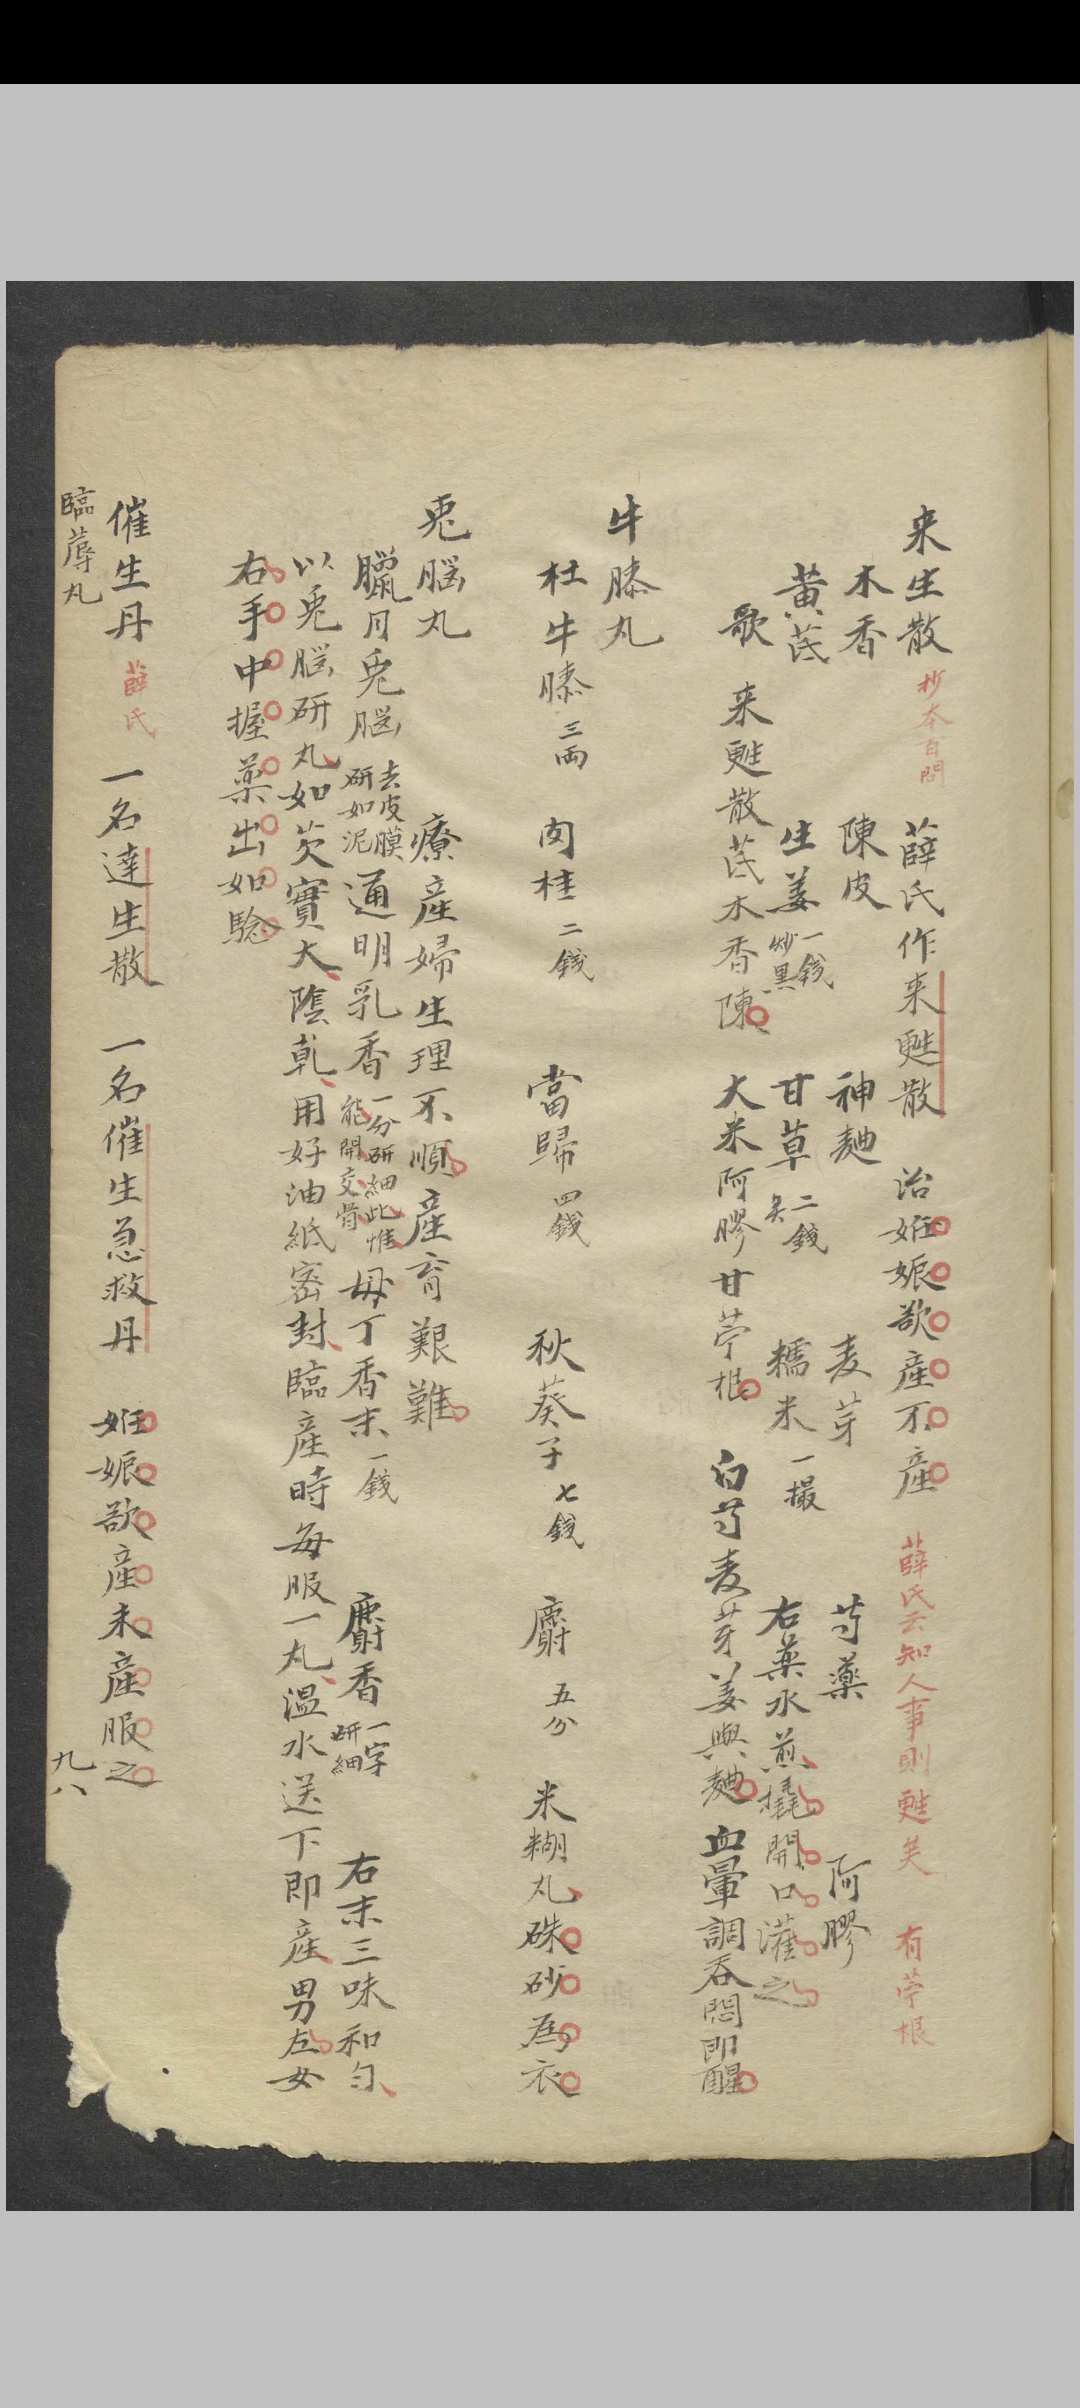 来生散 抄本百問 薛氏作来甦散 治姙娠欲産不産 薛氏云知人事則甦矣 有苧根
木香 陳皮 神麯 麦芽 芍藥 阿膠
黄芪 生姜一錢炒黒 甘草二錢炙 糯米一撮 右薬水煎撬開口灌之
歌 来甦散芪木香陳 大米阿膠甘苧根 白芍麦芽姜與麯 血暈調吞悶即醒
牛膝丸
杜牛膝三両 肉桂二錢 當歸四錢 秋葵子七錢 麝五分 米糊丸硃砂為衣
兎脳丸 療産婦生理不順産育艱難
臘月兎脳去皮膜研如泥 通明乳香一分研細此惟能開交骨 母丁香末一錢 麝香一字研細 右末三味和勻
以兎脳研丸如芡實大陰乾用好油紙密封臨産時每服一丸温水送下即産男左女
右手中握薬出如驗
催生丹 薛氏 一名達生散 一名催生急救丹 姙娠欲産未産服之
臨蓐丸 九八